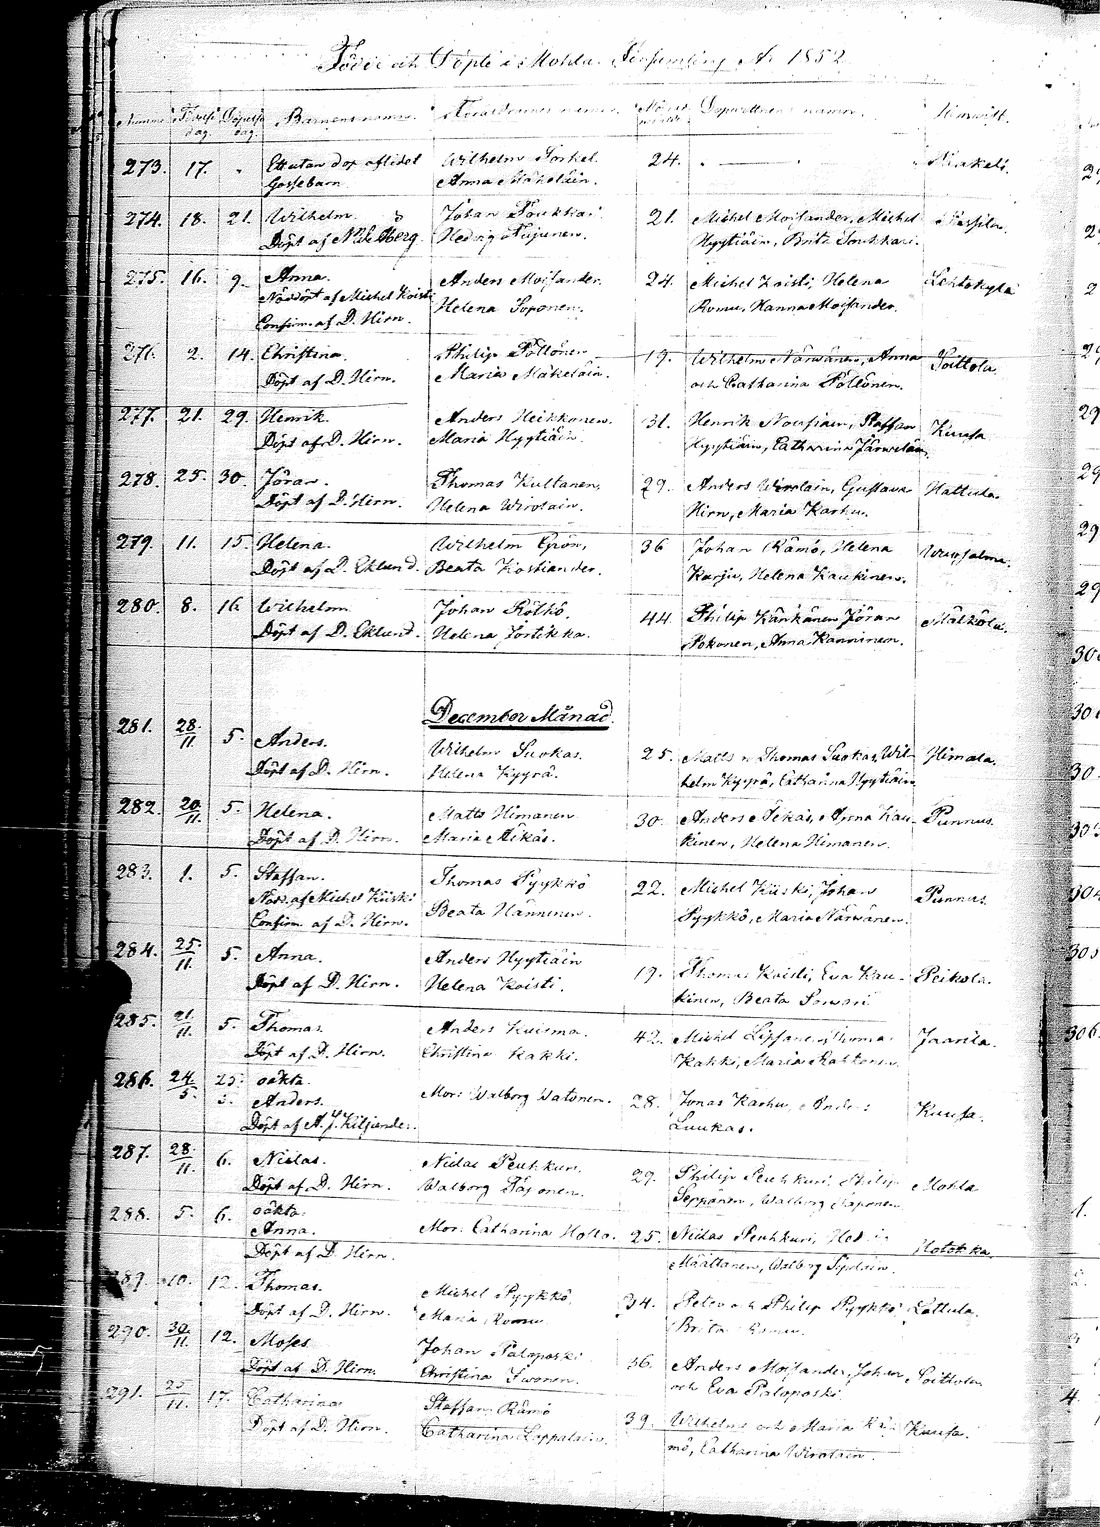 Födde och Döpte i Mohla Församling År 1852
Födelse dag. Döpelse dag. Barnens namn. Föräldrarnes namn. Moders ålder Dopvittnens namn. Hemvist.
273. 17. Ett utan dop aflidet Wilhelm Torkel. 24.
Gossebarn Anna Mäkeläin.
274. 18. 21. Wilhelm. Johan Soukkai. 21. Michel Moisander, Michel
Döpt af Berg Hedvig Hyytiäin, Brita Soukkari.
275. 16. 9. Anna. Anders Moisander. 24. Michel Koisti, Helena Lehtokylä
Nöddöpt af Michel Koisti
Helena Soponen. Romu, Hanna Moisander.
Confirm. af D. Hirn.
276. 2. 14. Christina. Philip Pöllönen 19. Wilhelm Närwänen, Anna Soittola
Döpt af D. Hirn. Maria Mäkeläin. och Catharina Pöllönen.
277. 21. 29. Henrik. Anders Heikkonen. 31. Henrik Nousiain, Staffan Kuusa
Döpt af D. Hirn. Maria Hyytiäin. Hyytiäin, Catharina Järweläin.
278. 25. 30. Jöran. Thomas Kultanen, 29. Anders Wirolain, Gustava Hattula.
Döpt af D. Hirn. Helena Wirolain. Hirn, Maria Karhu.
279. 11. 15. Helena. Wilhelm Grön, 36 Johan Rämö, Helena
Döpt af D. Eklund. Beata Kostiander. Karju, Helena Kaukinen.
280. 8. 16. Wilhelm Johan Röthö. 44. Philip Känkänen Jöran Mälkölä.
Döpt af D. Eklund. Helena Jortikka. Pokonen, Anna Kanninen.
December Månad
281. 28./11. 5. Anders. Wilhelm Suokas. 25. Matts o Thomas Suokas, Wil- Himala.
Döpt af D. Hirn. Helena Kyyrä. helm Kyyrä, Catharina Hyytiäin
282. 20./11. 5. Helena. Matts Himanen 30. Anders Mikäs, Anna Kau- Punnus.
Döpt af D. Hirn. Maria Mikäs. kinen, Helena Himanen.
283. 1. 5. Staffan. Thomas Pyykkö 22. Michel Kiiski, Johan Punnus.
Nödd. af Michel Kiiski
Beata Hänninen. Pyykkö, Maria Närwänen.
Confirm. af D. Hirn.
284. 25./11. 5. Anna. Anders Hyytiäin 19. Thomas Koisti, Eva Kau- Peikola.
Döpt af D. Hirn. Helena Koisti. kinen, Beata
285. 21/11. 5. Thomas. Anders Kuisma. 42. Michel Lipsanen, Thomas Jaarila.
Döpt af D. Hirn. Christina Kakki. Kakki, Maria
286. 24/5. 25. oäkta.
3. Anders. Mor: Walborg Watonen. 28. Jonas Karhu, Anders Kuusa.
Döpt af A. J. Kiljander. Luukas.
287. 28./11. 6. Niclas. Niclas Peuhkuri. 29. Philip Peuhkuri, Philip Mohla
Döpt af D. Hirn. Walborg Paponen. Seppänen, Walborg Paponen
288. 5. 6. oäkta.
Anna. Mor: Catharina Hollo. 25. Niclas Peuhkuri,
Döpt af D. Hirn. Määttänen, Walborg Sipolain.
289. 10. 12. Thomas. Michel Pyykkö. 34. Peter och Philip Pyykkö Lattula.
Döpt af D. Hirn. Maria Romu. Brita Romu.
290. 30./11. 12. Moses Johan Paloposki 36. Anders Moisander, Johan Soittola
Döpt af D. Hirn. Christina Iwonen. och Eva Paloposki
291. 25/11. 17. Catharina Staffan Rämö 39. Wilhelm och Maria Rä- Kuusa.
Döpt af D. Hirn. Catharina Lappalain. mö, Catharina Wirolain.